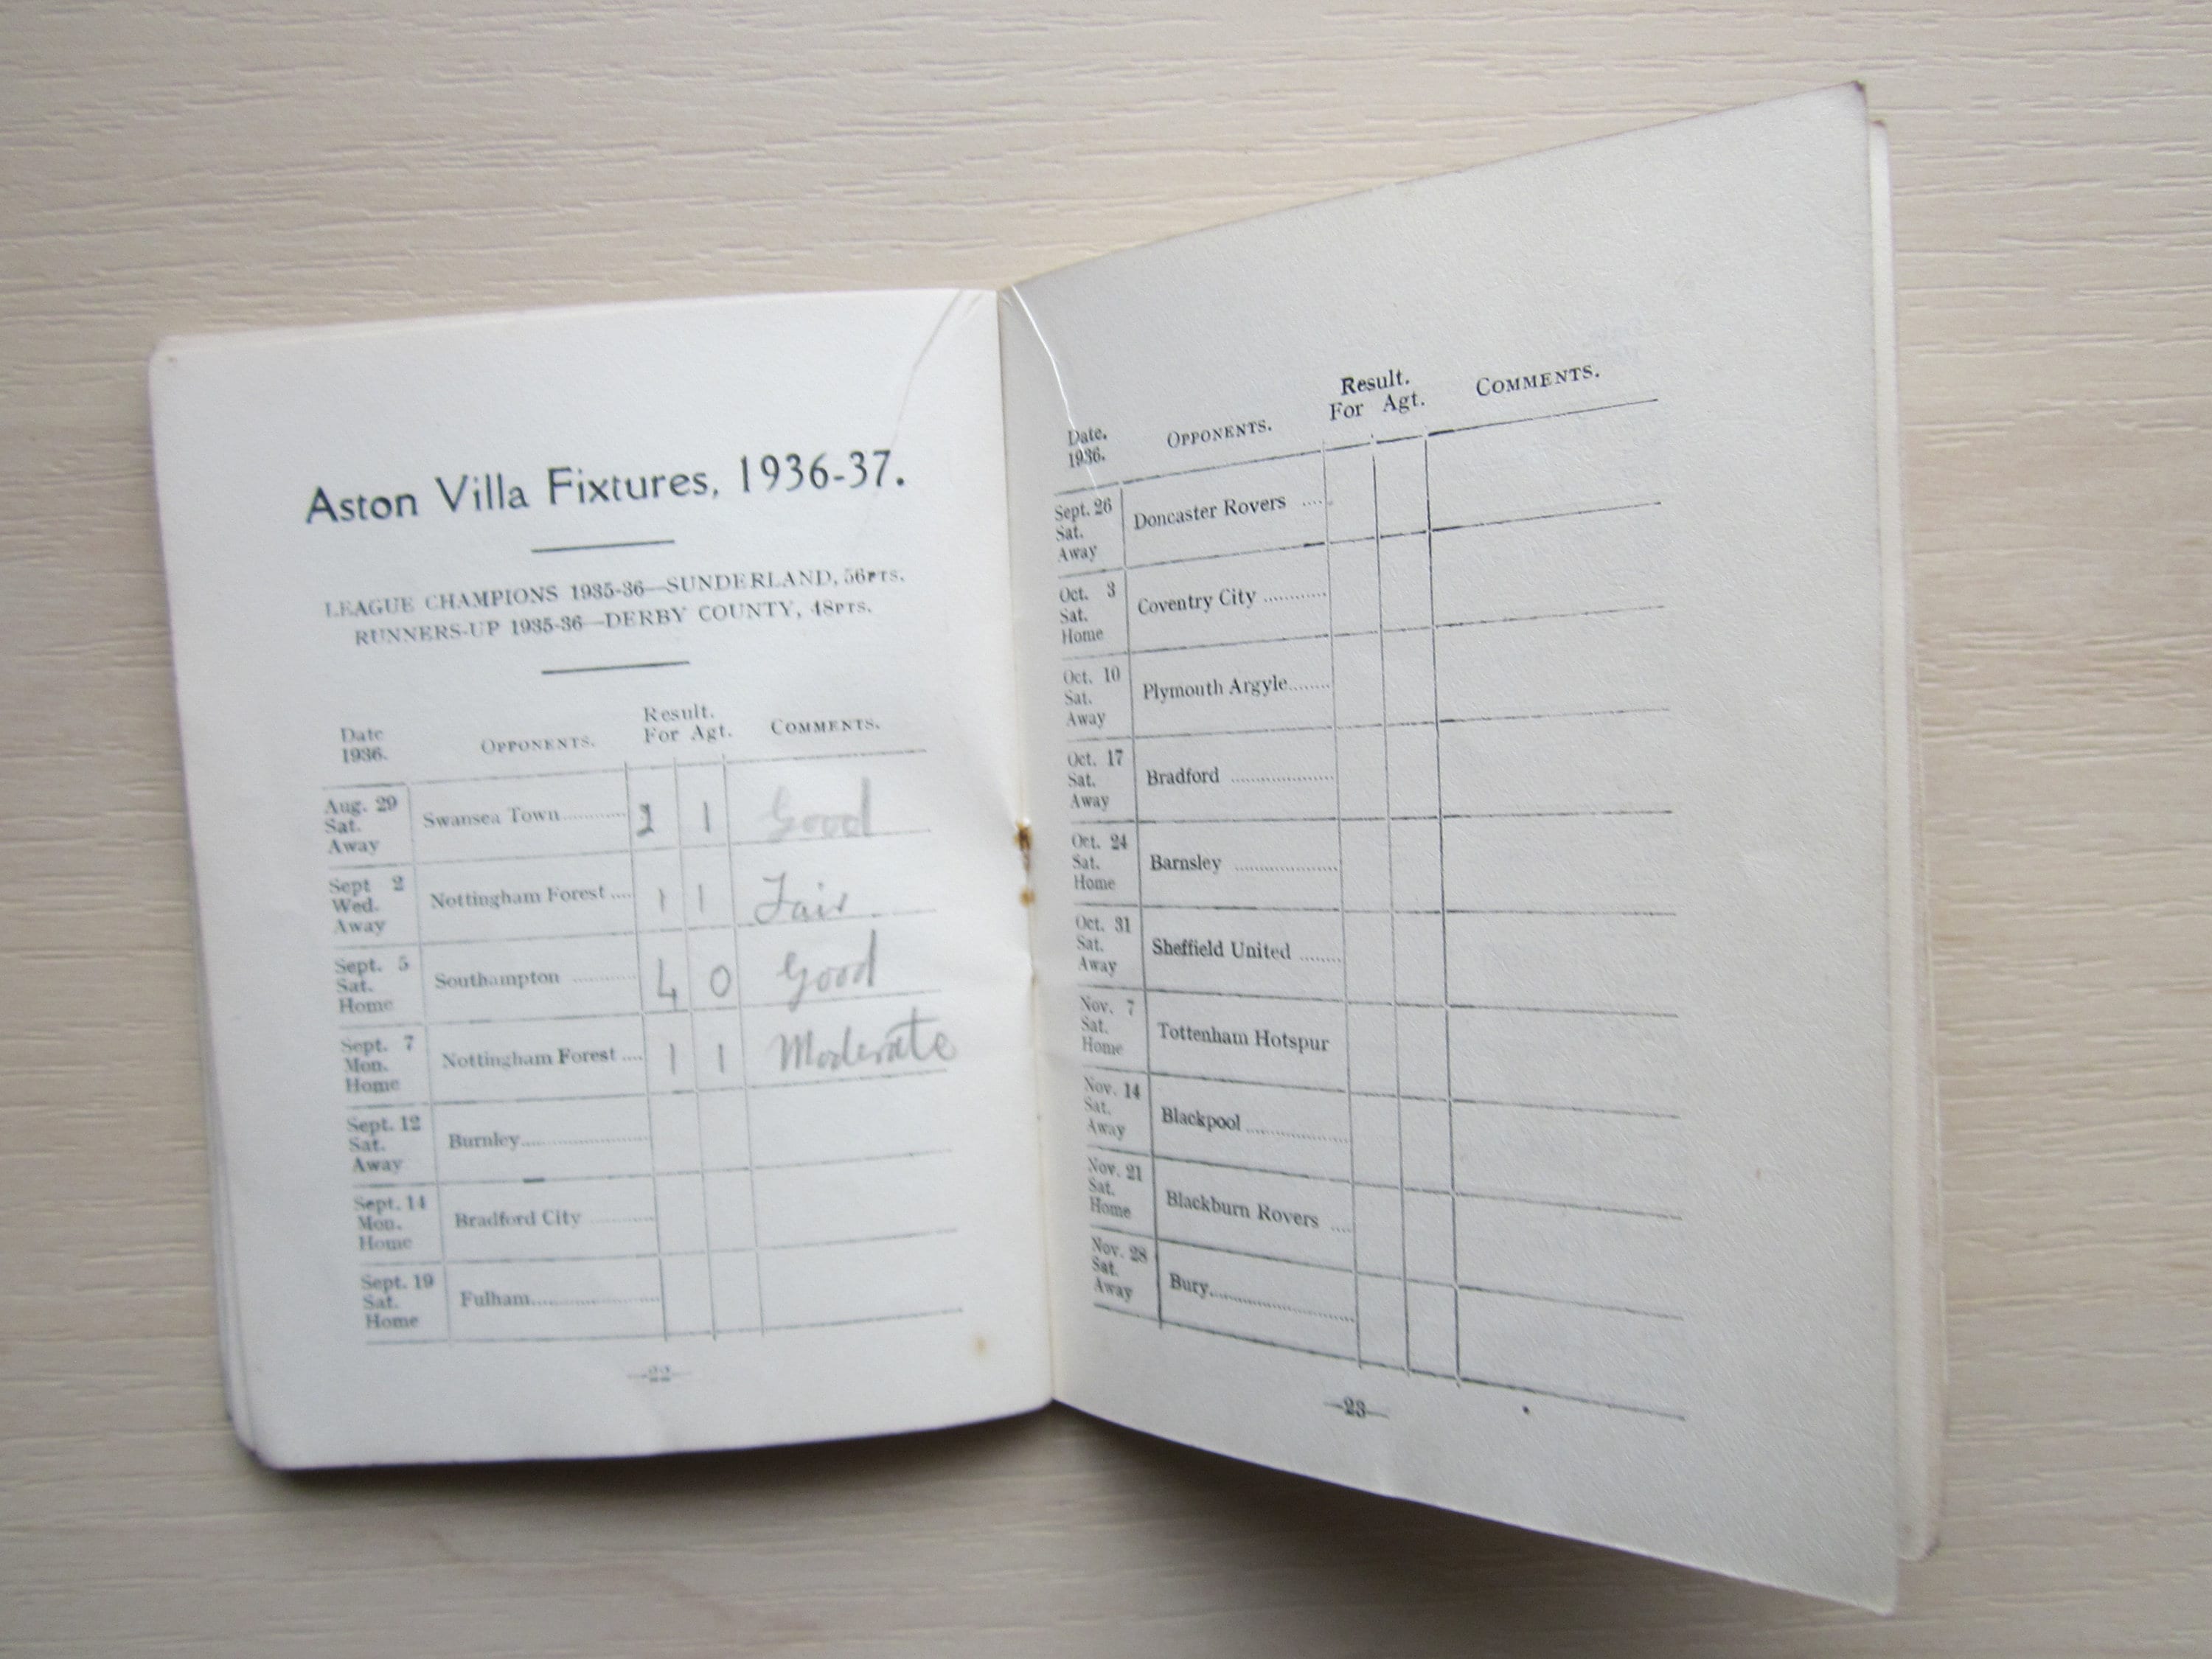 Aston Villa Fixtures, 1936-37.
LEAGUE CHAMPIONS 1935-36—SUNDERLAND, 56PTS.
RUNNERS-UP 1935-36—DERBY COUNTY, 48PTS.
Date 1936. OPPONENTS. Result. For Agt. COMMENTS.
Aug. 29 Sat. Away Swansea Town............ 1 Good
Sept 2 Wed. Away Nottingham Forest .... 1 1 Fair
Sept. 5 Sat. Home Southampton ............ 4 0 Good
Sept. 7 Mon. Home Nottingham Forest .... 1 1 Moderate
Sept. 12 Sat. Away Burnley........................
Sept. 14 Mon. Home Bradford City ............
Sept. 19 Sat. Home Fulham........................
—22—
Date. 1936. OPPONENTS. Result. For Agt. COMMENTS.
Sept. 26 Sat. Away Doncaster Rovers ....
Oct. 3 Sat. Home Coventry City ............
Oct. 10 Sat. Away Plymouth Argyle........
Oct. 17 Sat. Away Bradford ....................
Oct. 24 Sat. Home Barnsley ....................
Oct. 31 Sat. Away Sheffield United ........
Nov. 7 Sat. Home Tottenham Hotspur
Nov. 14 Sat. Away Blackpool ....................
Nov. 21 Sat. Home Blackburn Rovers ....
Nov. 28 Sat. Away Bury............................
—23—